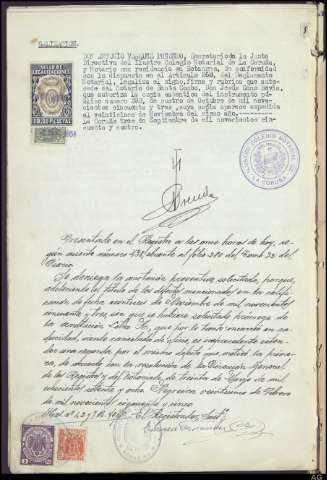 DON ANTONIO VAZQUEZ PENEDO, Secretario de la Junta
Directiva del Ilustre Colegio Notarial de La Coruña,
y Notario con residencia en Betanzos, de conformidad
con lo dispuesto en el artículo 265, del Reglamento
Notarial, legaliza el signo, firma y rúbrica que ante-
cede del Notario de Santa Comba, Don Jesús
que autoriza la copia auténtica del instrumento pú-
blico número de cuatro de Octubre de mil nove-
cientos cincuenta y tres, cuya copia aparece expedida
el veinticinco de Noviembre del mismo año.
La Coruña tres de Septiembre de mil novecientos cin-
cuenta y cuatro.
SELLO DE
LEGALIZACIONES
PESETAS
ILUSTRE COLEGIO NOTARIAL DE
LA CORUÑA
Presentado en el Registro a las once horas de hoy, se-
gún asiento número al folio 280 del tomo 32 del
Diario
Se deniega la anotación preventiva solicitada, porque
adoleciendo el título de los defectos mencionados en la califi-
cación de fecha catorce de Noviembre de mil novecientos
cincuenta y tres, sin que se hubiese solicitado prórroga de
la anotación letra A, que por lo tanto incurrió en ca-
ducidad, siendo cancelada de oficio, es improcedente exten-
der una segunda por el mismo defecto que motivó la prime-
ra, de acuerdo con la resolución de la Dirección General
de los Registros y del Notariado, de treinta de Marzo de mil
ochocientos ochenta y ocho. Negreira veintiuno de Febrero
de mil novecientos cincuenta y cinco
El Registrador,
AG